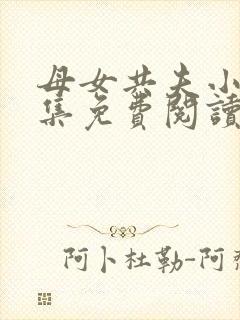 母女共夫小
集免費閱讀
阿卜杜勒-阿